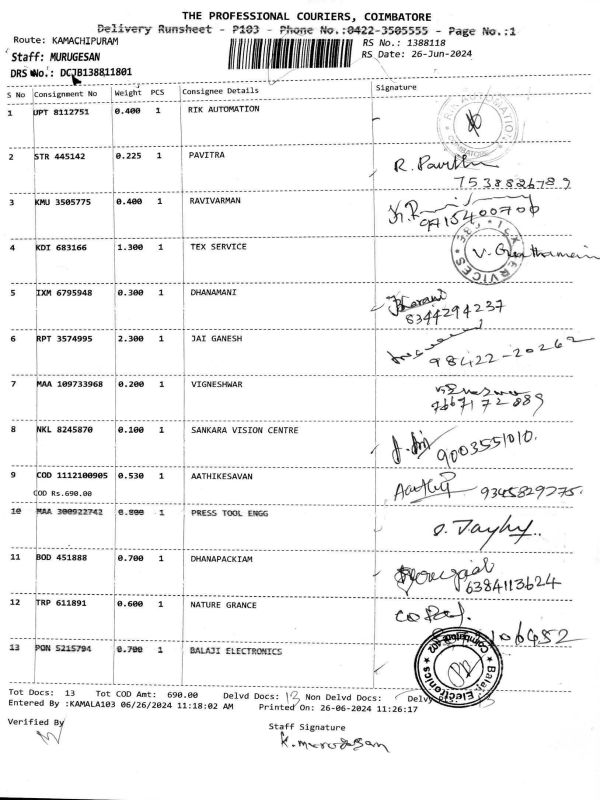 THE PROFESSIONAL COURIERS, COIMBATORE
Delivery Runsheet - P103 - Phone No.:0422-3505555 - Page No.:1
Route: KAMACHIPURAM RS No.: 1388118
Staff: MURUGESAN RS Date: 26-Jun-2024
DRS No.: DCJB138811801
S No Consignment No Weight PCS Consignee Details Signature
1 UPT 8112751 0.400 1 RIK AUTOMATION
RIK AUTOMATION
2 STR 445142 0.225 1 PAVITRA
R. Pavithra
7538826789
3 KMU 3505775 0.400 1 RAVIVARMAN
9715400700
4 KDI 683166 1.300 1 TEX SERVICE
5 IXM 6795948 0.300 1 DHANAMANI
8344294237
6 RPT 3574995 2.300 1 JAI GANESH
98422-20262
7 MAA 109733968 0.200 1 VIGNESHWAR
8 NKL 8245870 0.100 1 SANKARA VISION CENTRE
9003551010.
9 COD 1112100905 0.530 1 AATHIKESAVAN
COD Rs.690.00
9345829275.
10 MAA 300922742 0.800 1 PRESS TOOL ENGG
11 BOD 451888 0.700 1 DHANAPACKIAM
6384113624
12 TRP 611891 0.600 1 NATURE GRANCE
106482
13 PON 5215794 0.700 1 BALAJI ELECTRONICS
Balaji Electronics
Coimbatore
Tot Docs: 13 Tot COD Amt: 690.00 Delvd Docs: 13 Non Delvd Docs: Delvy 13
Entered By :KAMALA103 06/26/2024 11:18:02 AM Printed On: 26-06-2024 11:26:17
Verified By Staff Signature
K. Murugesan